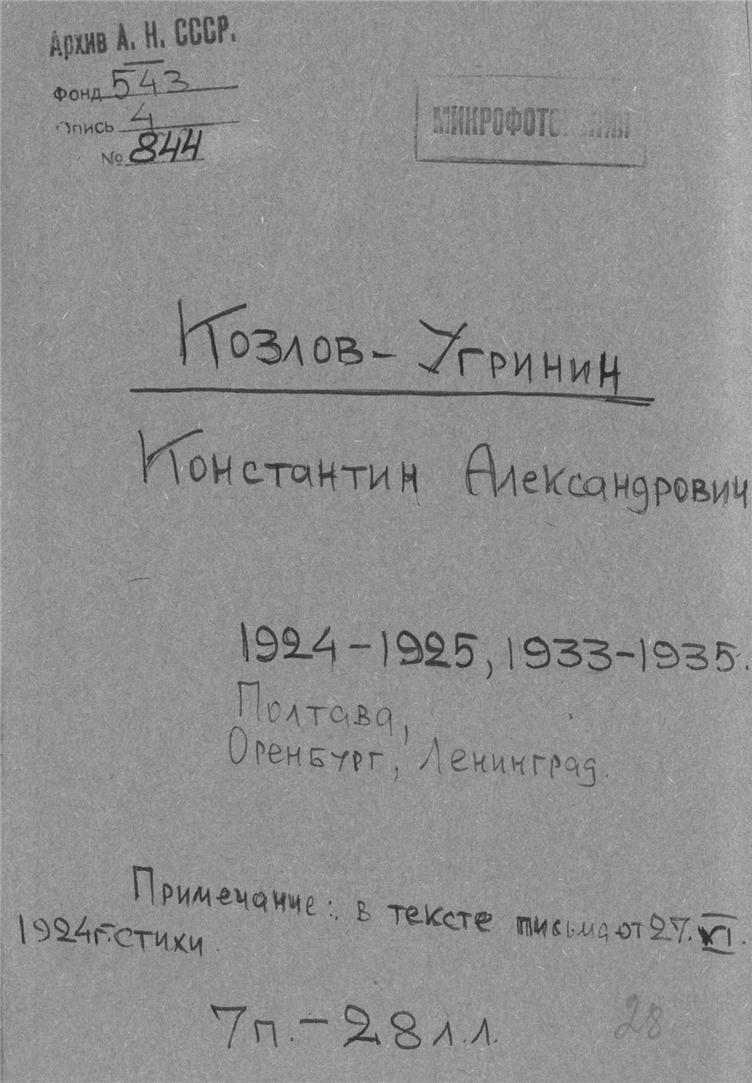 Архив А. Н. СССР.
Фонд 543
Опись 4
№ 844
МИКРОФОТОКОПИЯ
Козлов-Угринин
Константин Александрович
1924-1925, 1933-1935.
Полтава,
Оренбург, Ленинград.
Примечание: в тексте письма от 27. XI.
1924г. стихи.
7п.-28л.л.
28